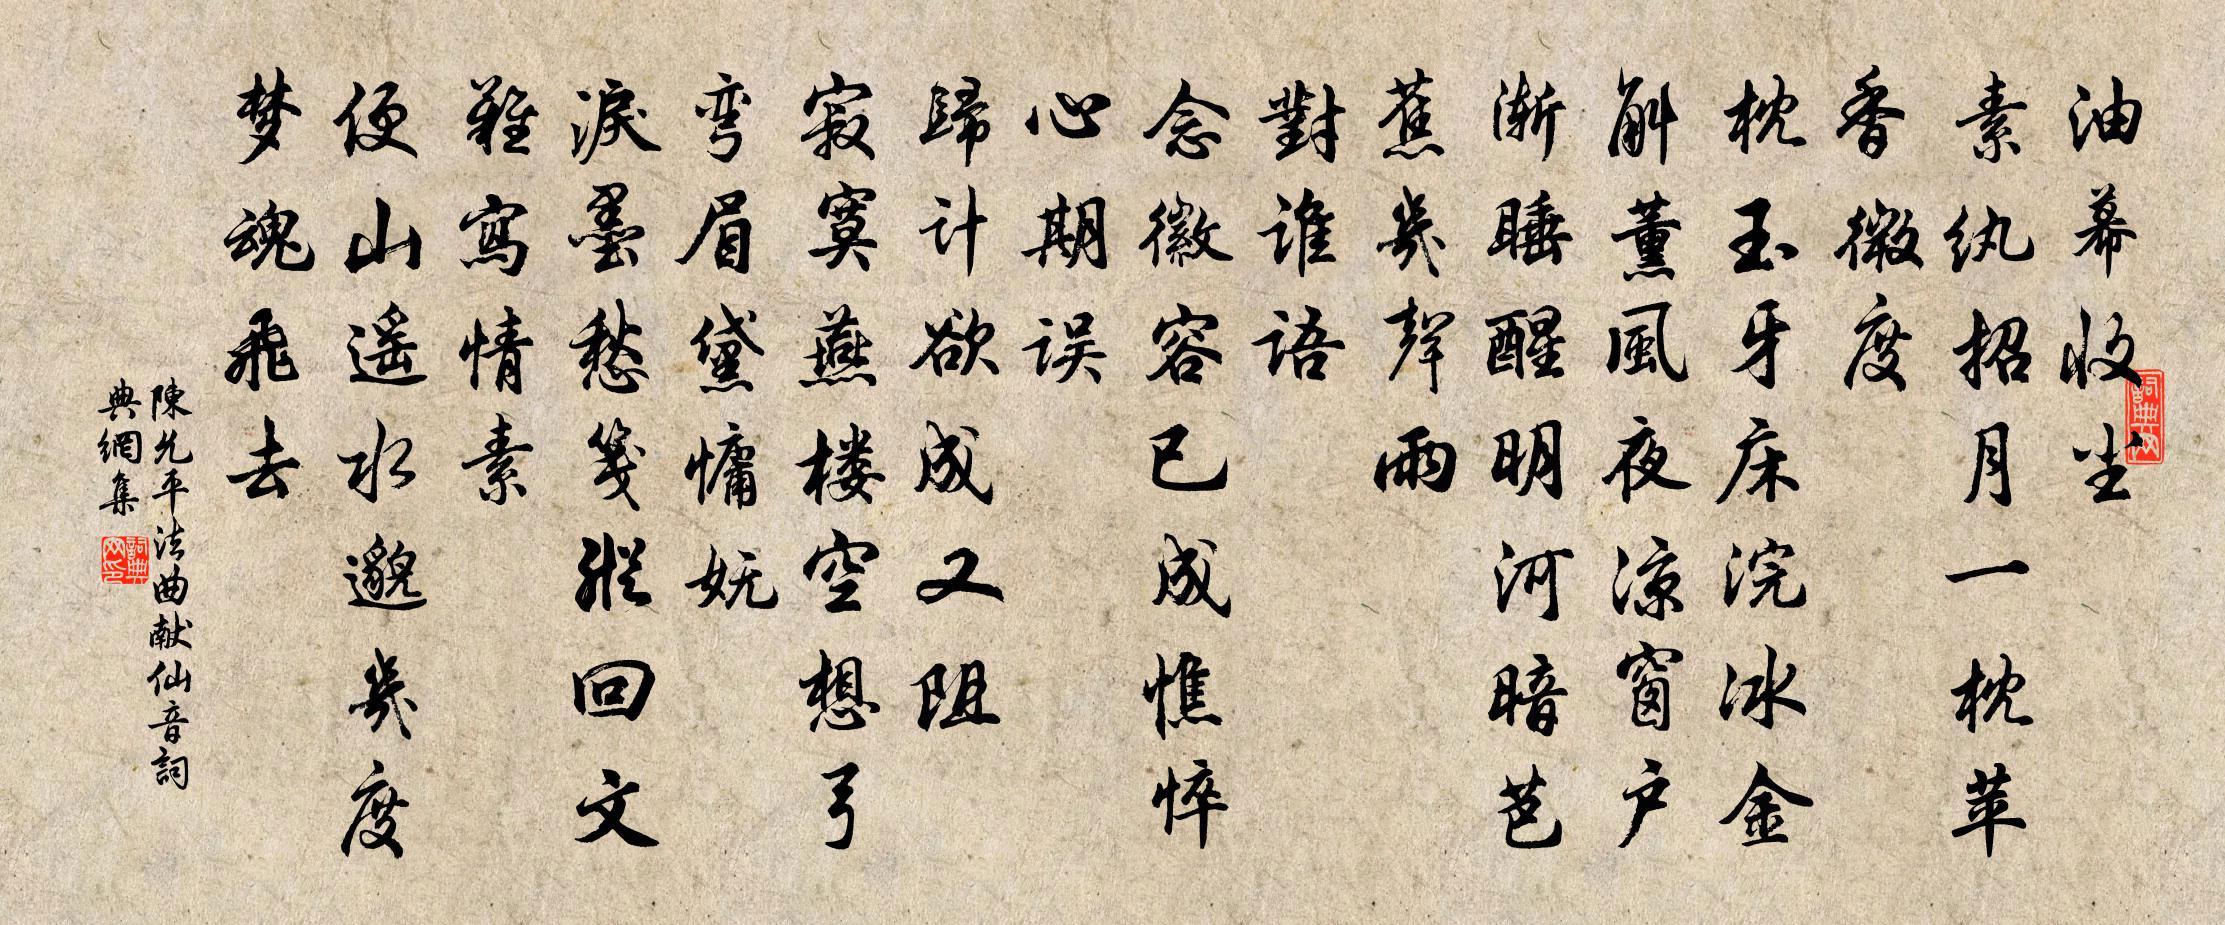 油幕收尘
素纨招月一枕苹
香微度
枕玉牙床浣冰金
斛薰風夜凉窗户
渐睡醒明河暗芭
蕉幾聲雨
對谁语
念徽容已成憔悴
心期误
歸计欲成又阻
寂寞燕楼空想弓
弯眉黛慵妩
淚墨愁笺縱回文
難寫情素
便山遥水邈幾度
梦魂飛去
陳允平法曲献仙音詞
典網集
詞典网
詞典网印